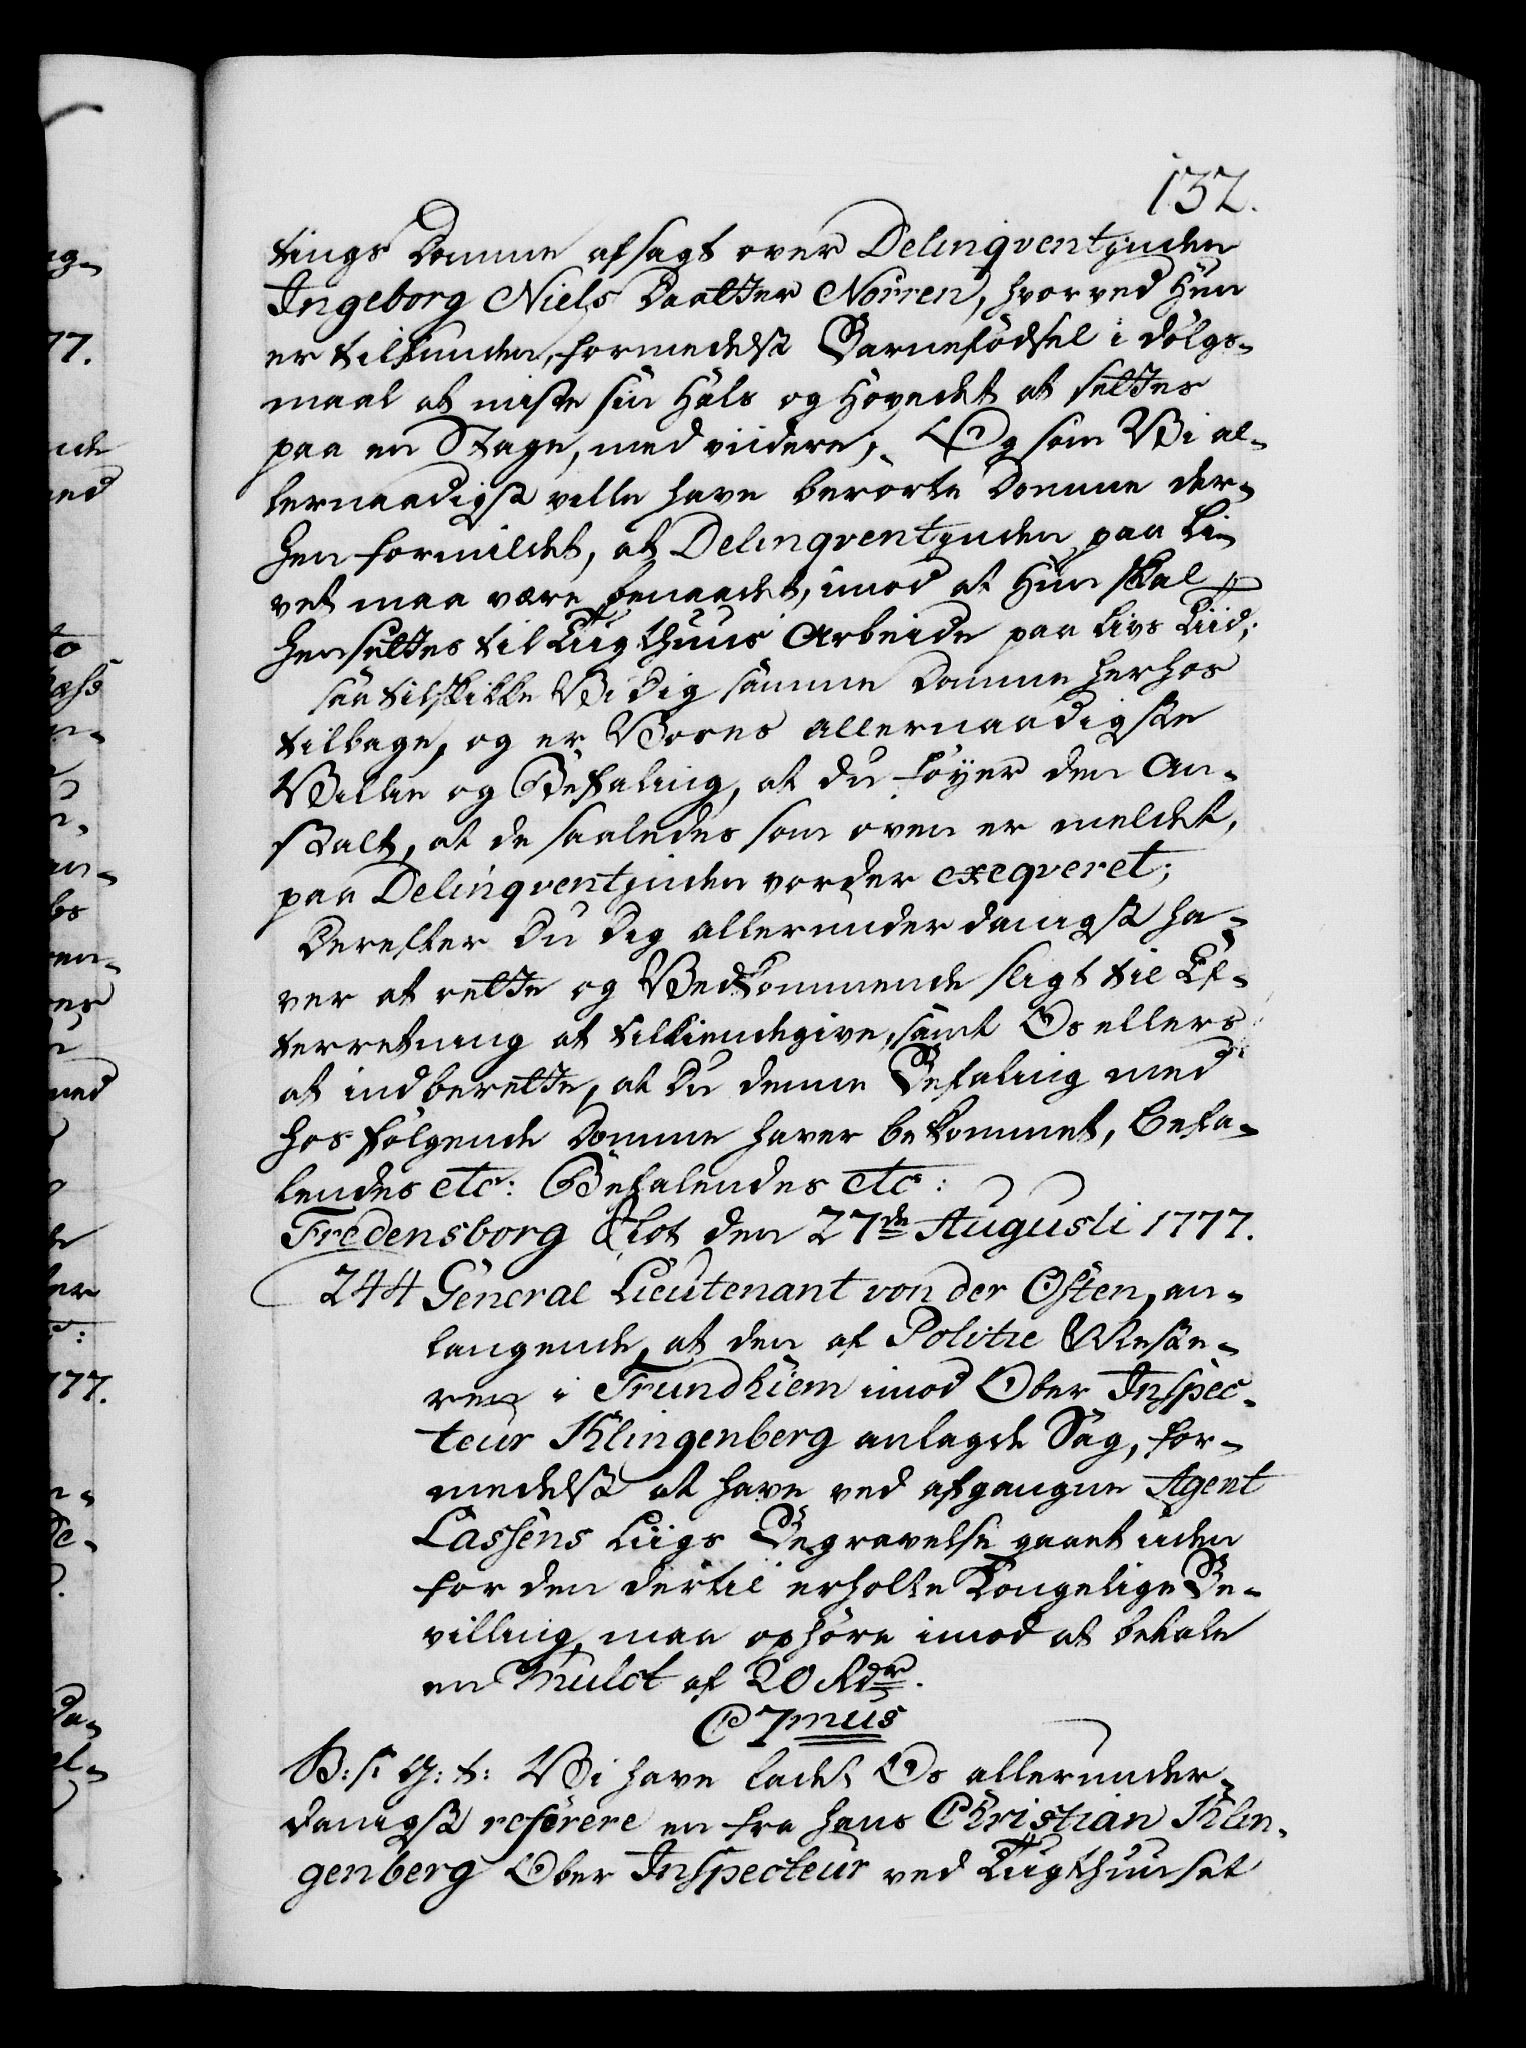 132.
tings Domme afsagt over Delinqventinden
Ingeborg Niels Daatter Norren, hvorved Hun
er tilfunden, formedelst Barnefødsel i dølgs-
maal at miste sin Hals og Hovedet at settes
paa en Stage, med viidere; Og som Vi al-
lernaadigst ville have berørte Domme der-
hen formildet, at Delinqventinden paa Li-
vet maa være benaadet, imod at Hun skal
hensettes til Tugthuus Arbeide paa Livs Tiid;
saa tilskikke Vi Dig samme Domme herhos
tilbage, og er Vores allernaadigste
Villie og Befaling, at du føyer den An-
stalt, at de saaledes som oven er meldet,
paa Delinqventinden vorder exeqveret;
Derefter Du Dig allerunderdanigst ha-
ver at rette og Vedkommende sligt til Ef-
terretning at tilkiendegive, samt Os ellers
at indberette, at Du denne Befaling med
hosfølgende Domme haver bekommet, Befa-
lendes etc: Befalendes etc:
Fredensborg Slot den 27de Augusti 1777.
244 General Lieutenant von der Osten, an-
langende, at den af Politie Meste-
ren i Trundhiem imod Ober Inspec-
teur Klingenberg anlagde Sag, for-
medelst at have ved afgangne Agent
Lassens Liigs Begravelse gaaet uden
for den dertil erholte Kongelige Be-
villing, maa ophøre imod at betale
en Mulct af 20 Rdr.
C 7mus
B: s: G: t: Vi have ladet Os allerunder-
danigst referere en fra Hans Christian Klin-
genberg Ober Inspecteur ved Tugthuuset